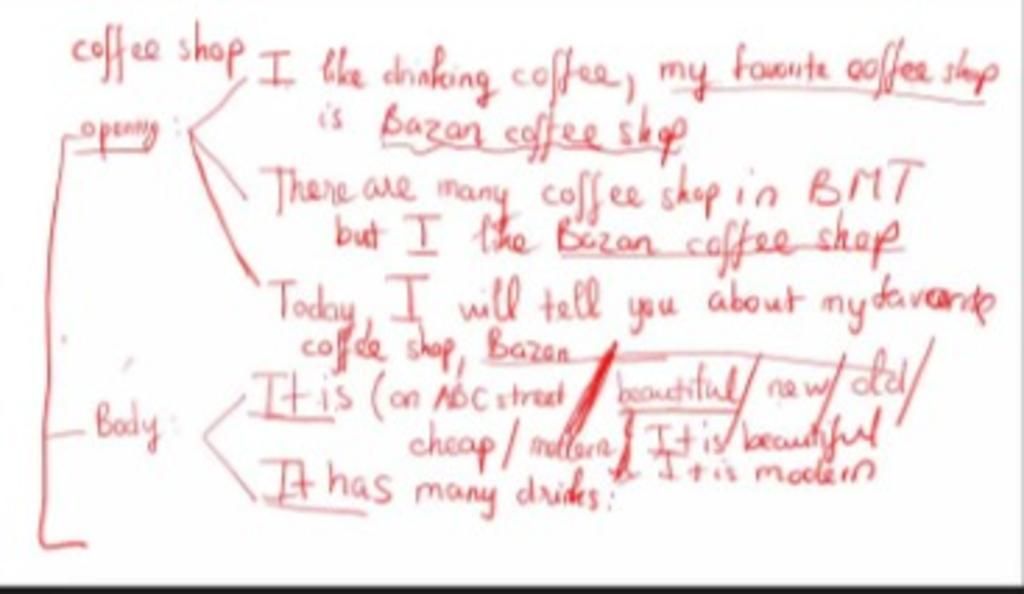 coffee shop
opening:
I like drinking coffee, my favorite coffee shop
is Bazan coffee shop
There are many coffee shop in BMT
but I like Bazan coffee shop
Today, I will tell you about my favorite
coffee shop, Bazan
Body:
It is (on ABC street / beautiful / new / old /
cheap / modern) It is beautiful
It is modern
It has many drinks: